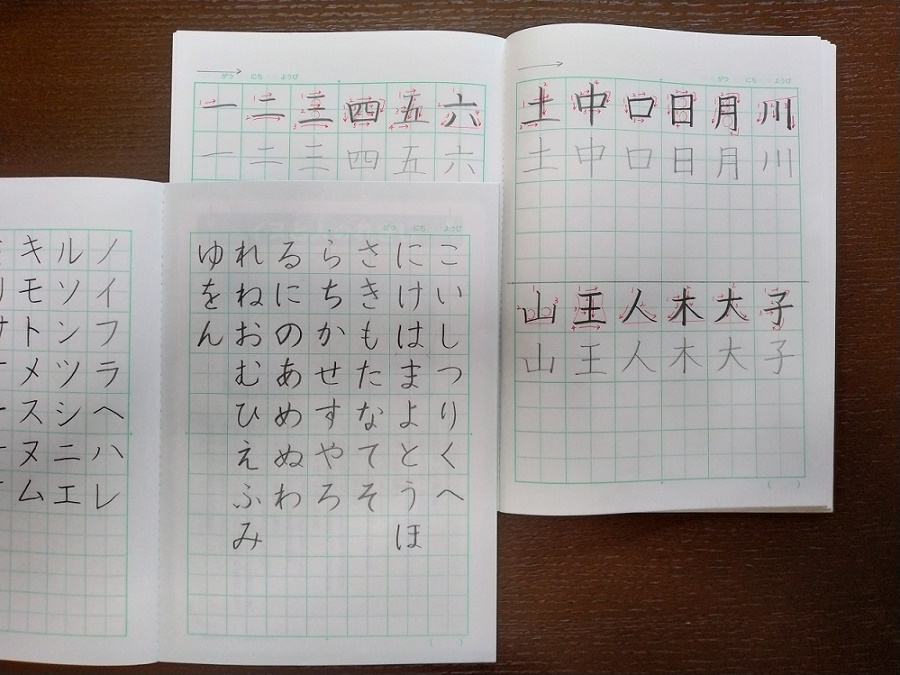 がつ にち ようび
一二三四五六
一二三四五六
がつ にち ようび
土中口日月川
土中口日月川
山王人木大子
山王人木大子
がつ にち ようび
こいしつりくへ
にけはまよとうほ
さきもたなてそ
らちかせすやろ
るにのあめぬわ
れねおむひえふみ
ゆをん
ノイフラヘハレ
ルソンツシニエ
キモトメスヌム